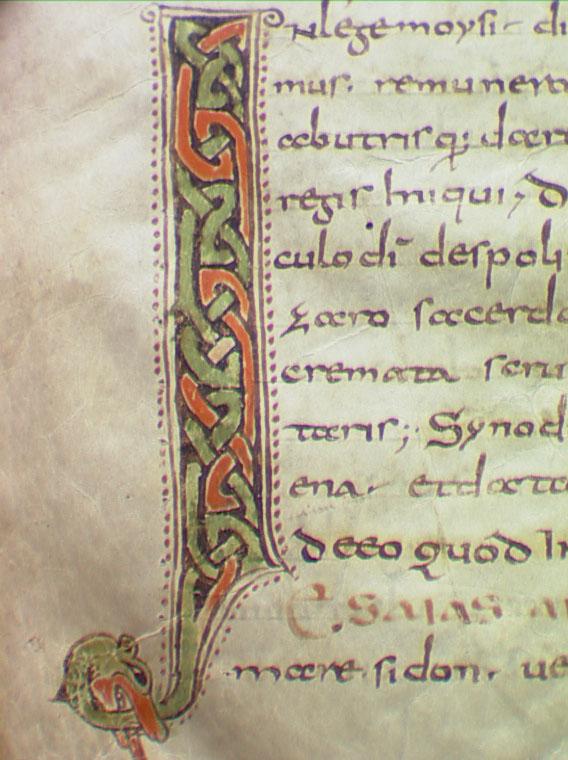 INlegemoysi di
mus. remunera
abutrisq; dcer
regis Iniqui, D
culo dī despoli
zaro sacerdo
cremata seru
taris; Synod
ena.
deeo quod In
Esaias
mare sidon. ue